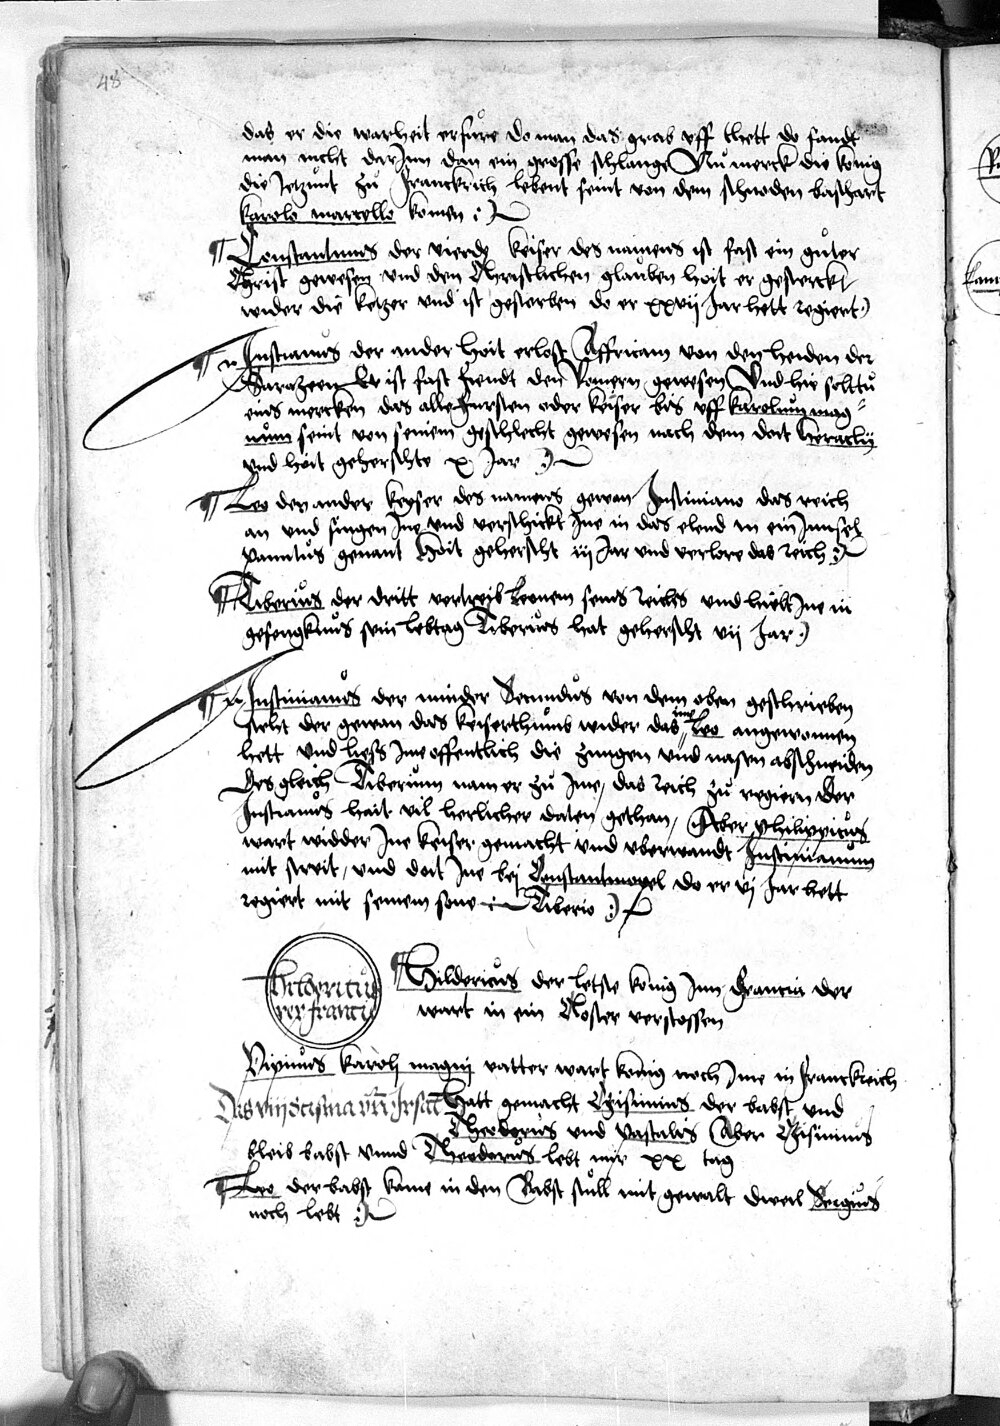 48
das er die warheit erfure do man das grab uff thett do fandt
man nicht dar Inn dan ein grosse schlange Nu merck die konig
die Jetzunt zu Franckrich lebent seint von dem schnoden baschart
karolo marcello komen
Constantinus der vierde keiser des namens ist fast ein guter
Christ gewesen und den Christlichen glauben hoit er gesterckt
wider die ketzer und ist gestorben do er xxvij Jar hett regiert
Justianus der ander hoit erlost Affricam von den heiden der
Sarazeen Er ist fast fiendt den Romern gewesen Und hie solttu
eins mercken das alle fursten oder keiser bis uff karolum mag
num seint von seinem geschlecht gewesen nach dem doit heraclij
und hoit geherschte x Jar
Leo der ander keyser des namens gewan Justiniano das reich
an und fingen Ine und verschickt Ine in das elend in ein Innsel
genant hoit geherscht iij Jar und verlore das reich
Tiberius der dritt vertreib Leonem seins reichs und hielt Ine in
gefengknus sein lebtag Tiberius hat geherscht vij Jar
Justinianus der minder Secundus von dem oben geschrieben
steht der gewan das keiserthumb wider das ime Leo angewonnen
hett und liess Ime offentlich die zungen und nasen abschneiden
Des gleich Tiberium nam er zu Ime das reich zu regiern Der
Justianus hait vil herlicher daten gethan Aber philippicus
wart widder Ine keiser gemacht und uberwandt Justinianum
mit streit und doit Ine bei Constantinopel do er vj Jar hett
regiert mit seinem sone Tiberio
Hildericus rex francie
Hildericus der letste konig Inn Francia der
wart in ein Closter verstossen
Pipinus karoli magni vatter wart konig noch Ime in Franckreich
Das viij scisma hatt gemacht Sisinius der babst und
Theodorus und pascalis Aber Sisinius
bleib babst unnd Theodorus lebt nur xx tag
Leo der babst kame in den Babst stull mit gewalt dweil Sergius
noch lebt